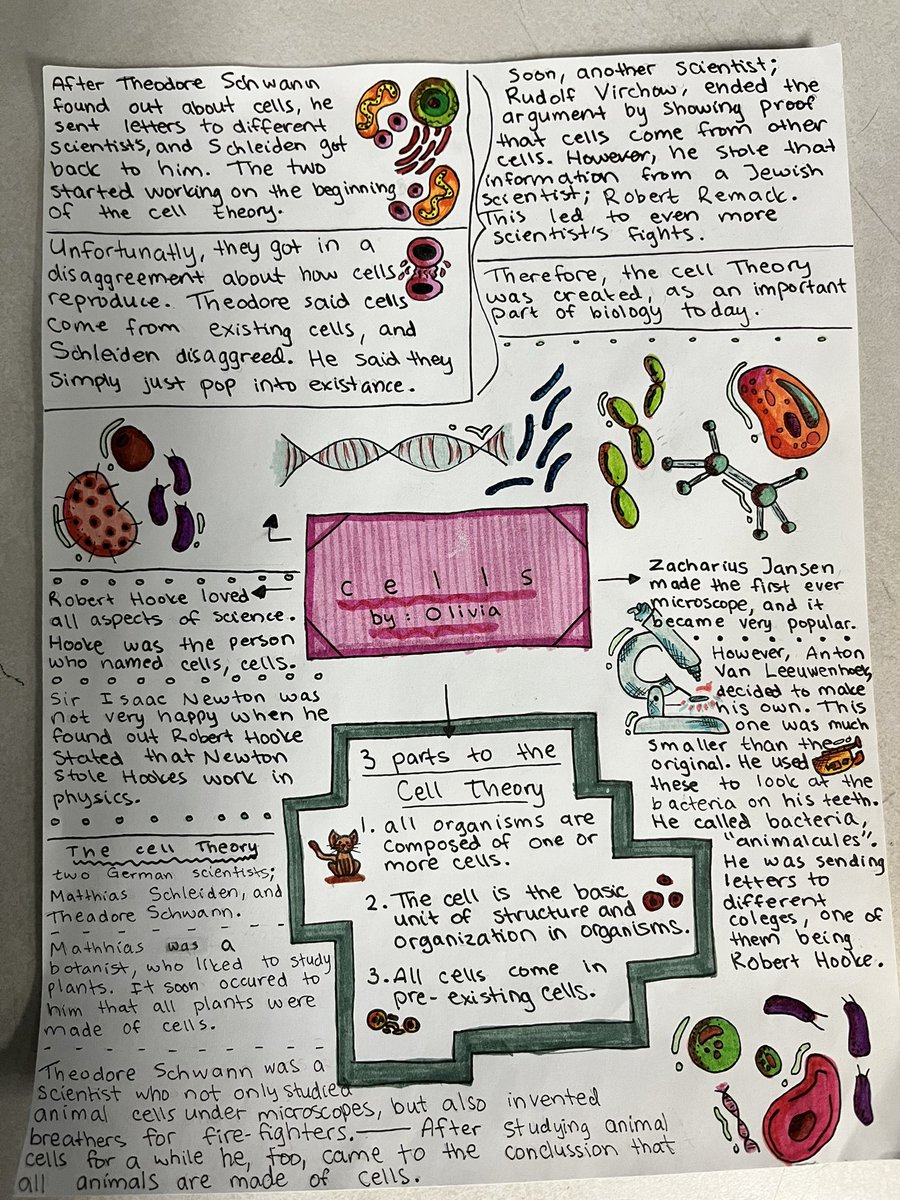 After Theodore Schwann
found out about cells, he
sent letters to different
scientists, and Schleiden got
back to him. The two
started working on the beginning
of the cell theory.
Unfortunatly, they got in a
disaggreement about how cells
reproduce. Theodore said cells
come from existing cells, and
Schleiden disaggreed. He said they
simply just pop into existance.
Soon, another scientist;
Rudolf Virchow, ended the
argument by showing proof
that cells come from other
cells. However, he stole that
information from a Jewish
scientist; Robert Remack.
This led to even more
scientist's fights.
Therefore, the cell Theory
was created, as an important
part of biology today.
cells
by: Olivia
Robert Hooke loved
all aspects of science.
Hooke was the person
who named cells, cells.
Sir Isaac Newton was
not very happy when he
found out Robert Hooke
stated that Newton
stole Hookes work in
physics.
The cell Theory
two German scientists;
Matthias Schleiden, and
Theodore Schwann.
Mathhias was a
botanist, who liked to study
plants. It soon occured to
him that all plants were
made of cells.
Theodore Schwann was a
scientist who not only studied
animal cells under microscopes, but also invented
breathers for fire-fighters. — After studying animal
cells for a while he, too, came to the conclussion that
all animals are made of cells.
3 parts to the
Cell Theory
1. all organisms are
composed of one or
more cells.
2. The cell is the basic
unit of structure and
organization in organisms.
3. All cells come in
pre-existing cells.
Zacharius Jansen
made the first ever
microscope, and it
became very popular.
However, Anton
Van Leeuwenhoek,
decided to make
his own. This
one was much
smaller than the
original. He used
these to look at the
bacteria on his teeth.
He called bacteria,
"animalcules".
He was sending
letters to
different
coleges, one of
them being
Robert Hooke.